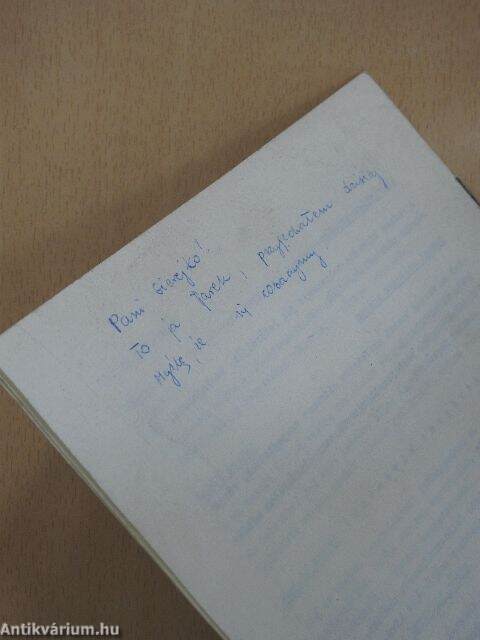 Pani Sierejko!
To ja Jarek, przyjechałem dzisiaj
Myślę, że się zobaczymy
Antikvárium.hu